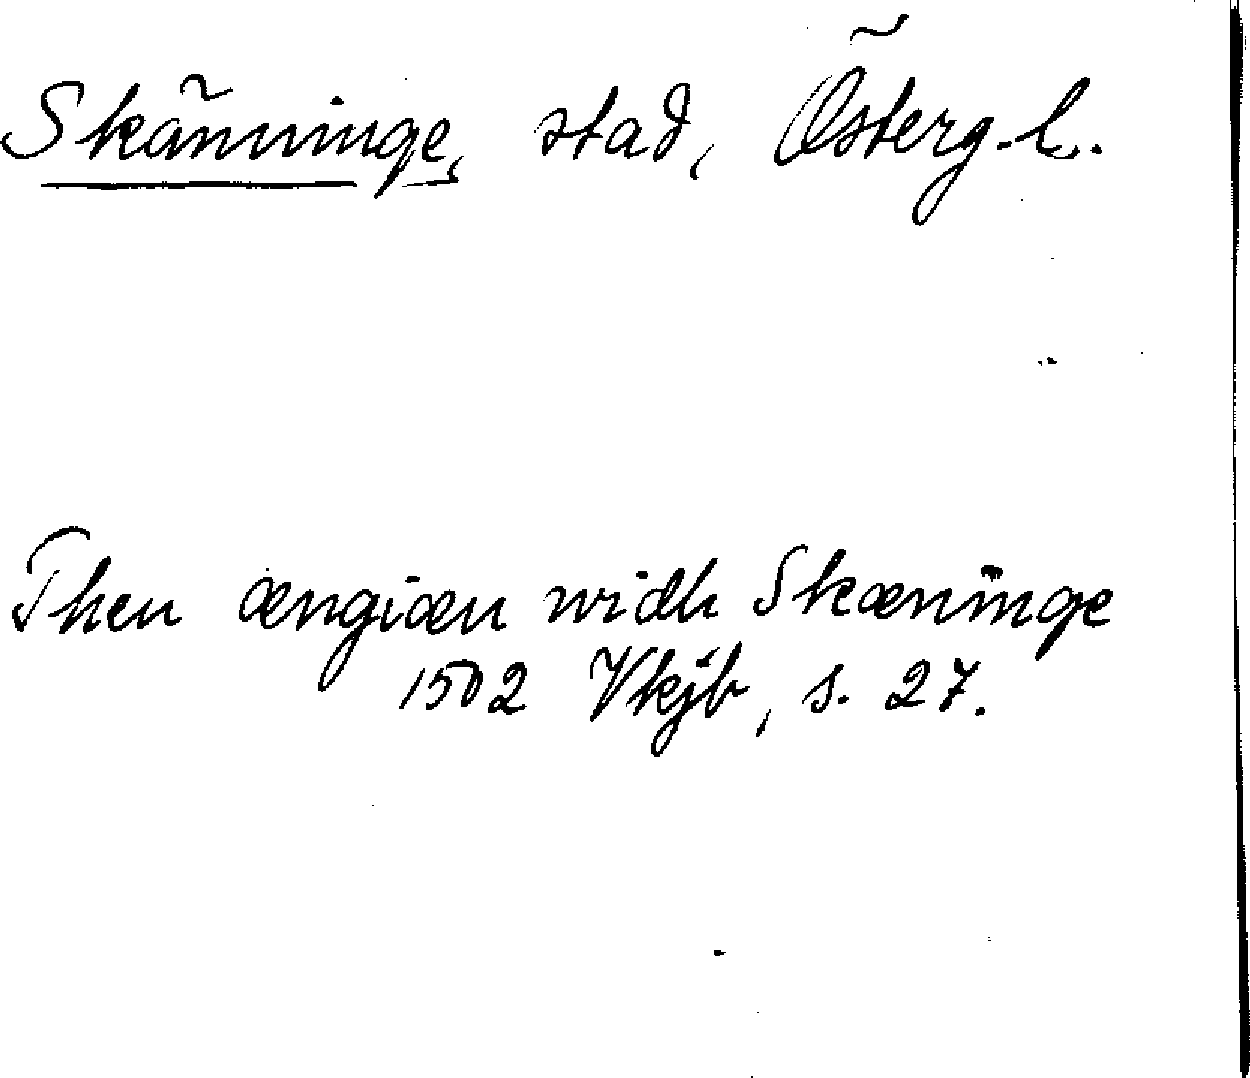 Skänninge, stad, Österg.l.
Then ængiæn widh Skæninge
1502 Vkjb, s. 27.